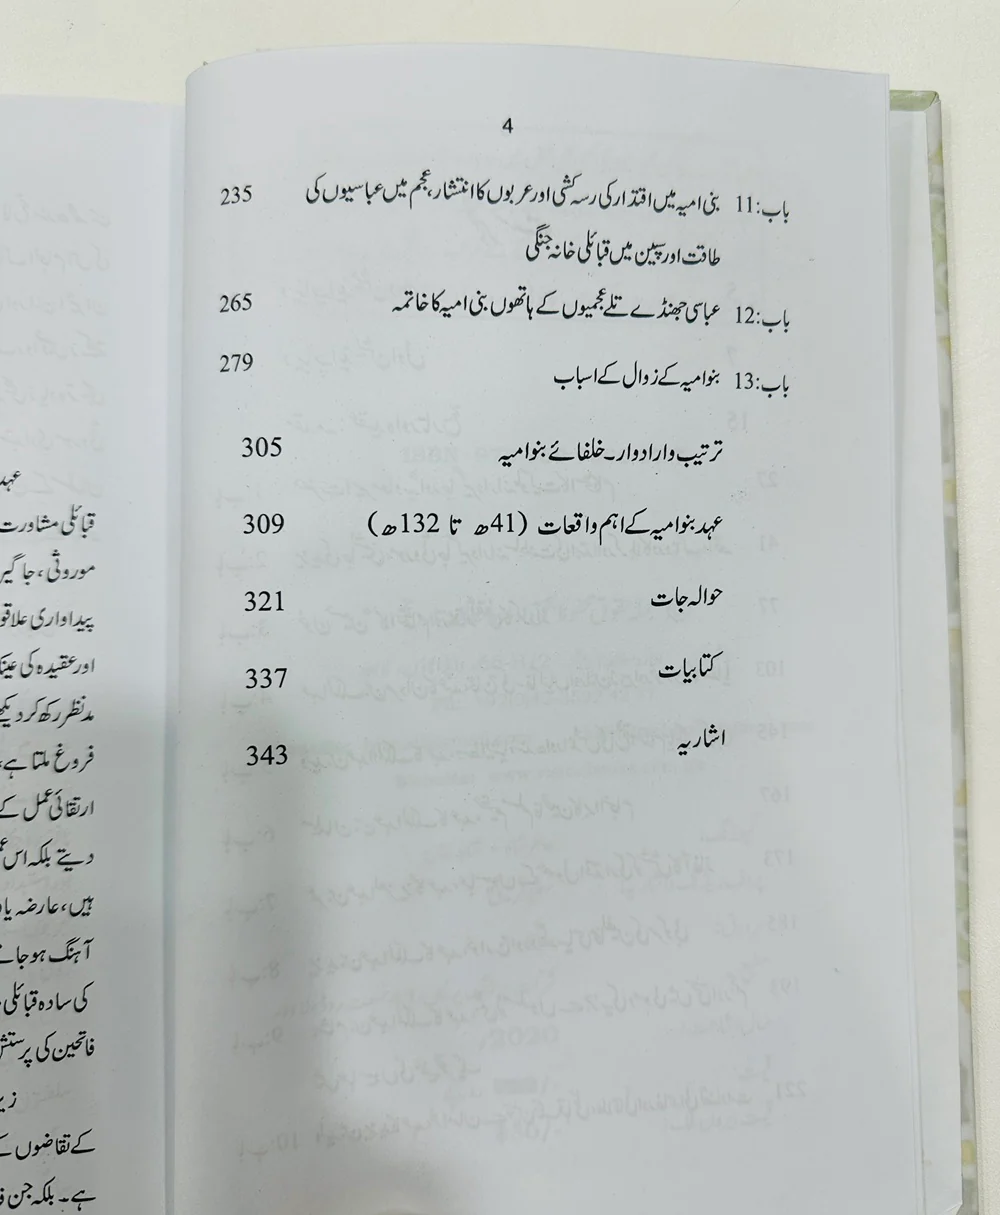 4
باب:11 بنی امیہ میں اقتدار کی رسہ کشی اور عربوں کا انتشار، عجم میں عباسیوں کی 235
طاقت اور سپین میں قبائلی خانہ جنگی
باب:12 عباسی جھنڈے تلے عجمیوں کے ہاتھوں بنی امیہ کا خاتمہ 265
باب:13 بنوامیہ کے زوال کے اسباب 279
ترتیب وار ادوار۔ خلفائے بنوامیہ 305
عہد بنوامیہ کے اہم واقعات (41ھ تا 132ھ) 309
حوالہ جات 321
کتابیات 337
اشاریہ 343
عہد
قبائلی مشاورت
موروثی، جاگیر
پیداواری علاقو
اور عقیدہ کی عینک
مدنظر رکھ کر دیکھ
فروغ ملتا ہے،
ارتقائی عمل کے
دیتے بلکہ اس
ہیں، عارضہ یا
آہنگ ہو جا
کی سادہ قبائلی
فاتحین کی پرستش
کے تقاضوں
ہے۔ بلکہ جن